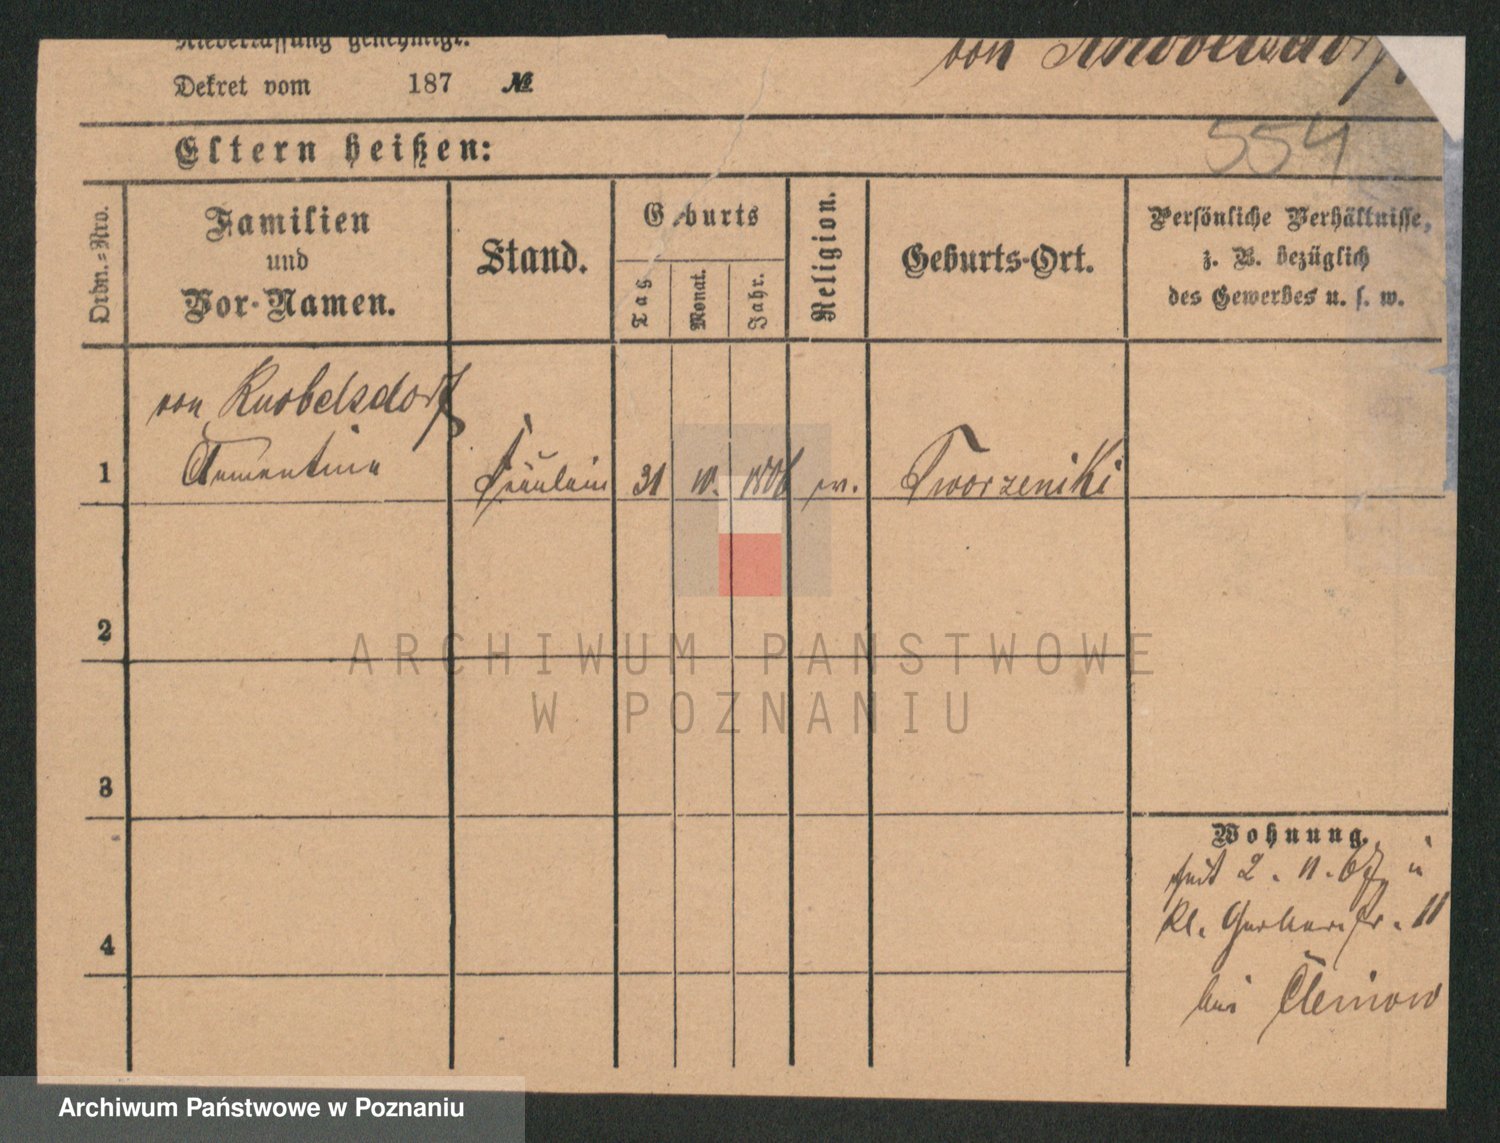 Niederlassung genehmigt.
von Knobelsdorf.
Dekret vom 187 №
554
Eltern heißen:
Ordn.-Nro.
Familien
und
Vor-Namen.
Stand.
Geburts
Tag.
Monat.
Jahr.
Religion.
Geburts-Ort.
Persönliche Verhältnisse,
z. B. bezüglich
des Gewerbes u. s. w.
von Knobelsdorf
Clementine
1
Fräulein
31
10.
1806
ev.
Tworzeniki
2
3
Wohnung.
seit 2. 11. 67 in
kl. Gerberstr. 11
bei
4
ARCHIWUM PAŃSTWOWE
W POZNANIU
Archiwum Państwowe w Poznaniu